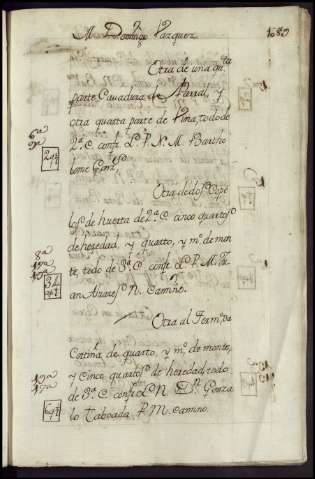 M. Domingo Vazquez
1689
Otra de una qu.ta
parte Cavadura de Parral, y
otra quarta parte de Viña, todo de
2.ª C. confi. L. P. N. M. Bartho
lome Gonz.s
6.ª
9.ª
Otra de dos
los de huerta de 2.ª C. cinco quartos
de heredad, y quarto, y m.º de mon
te, todo de 3.ª C. confi. L. P. M.
an Alvares N. Camino.
8.ª
Otra al Term.º da
Cortiña de quarto, y m.º de monte,
y cinco quartos de heredad, todo
de 3.ª C. confi. L. N. Gonza
lo Taboada P. M. Camino.